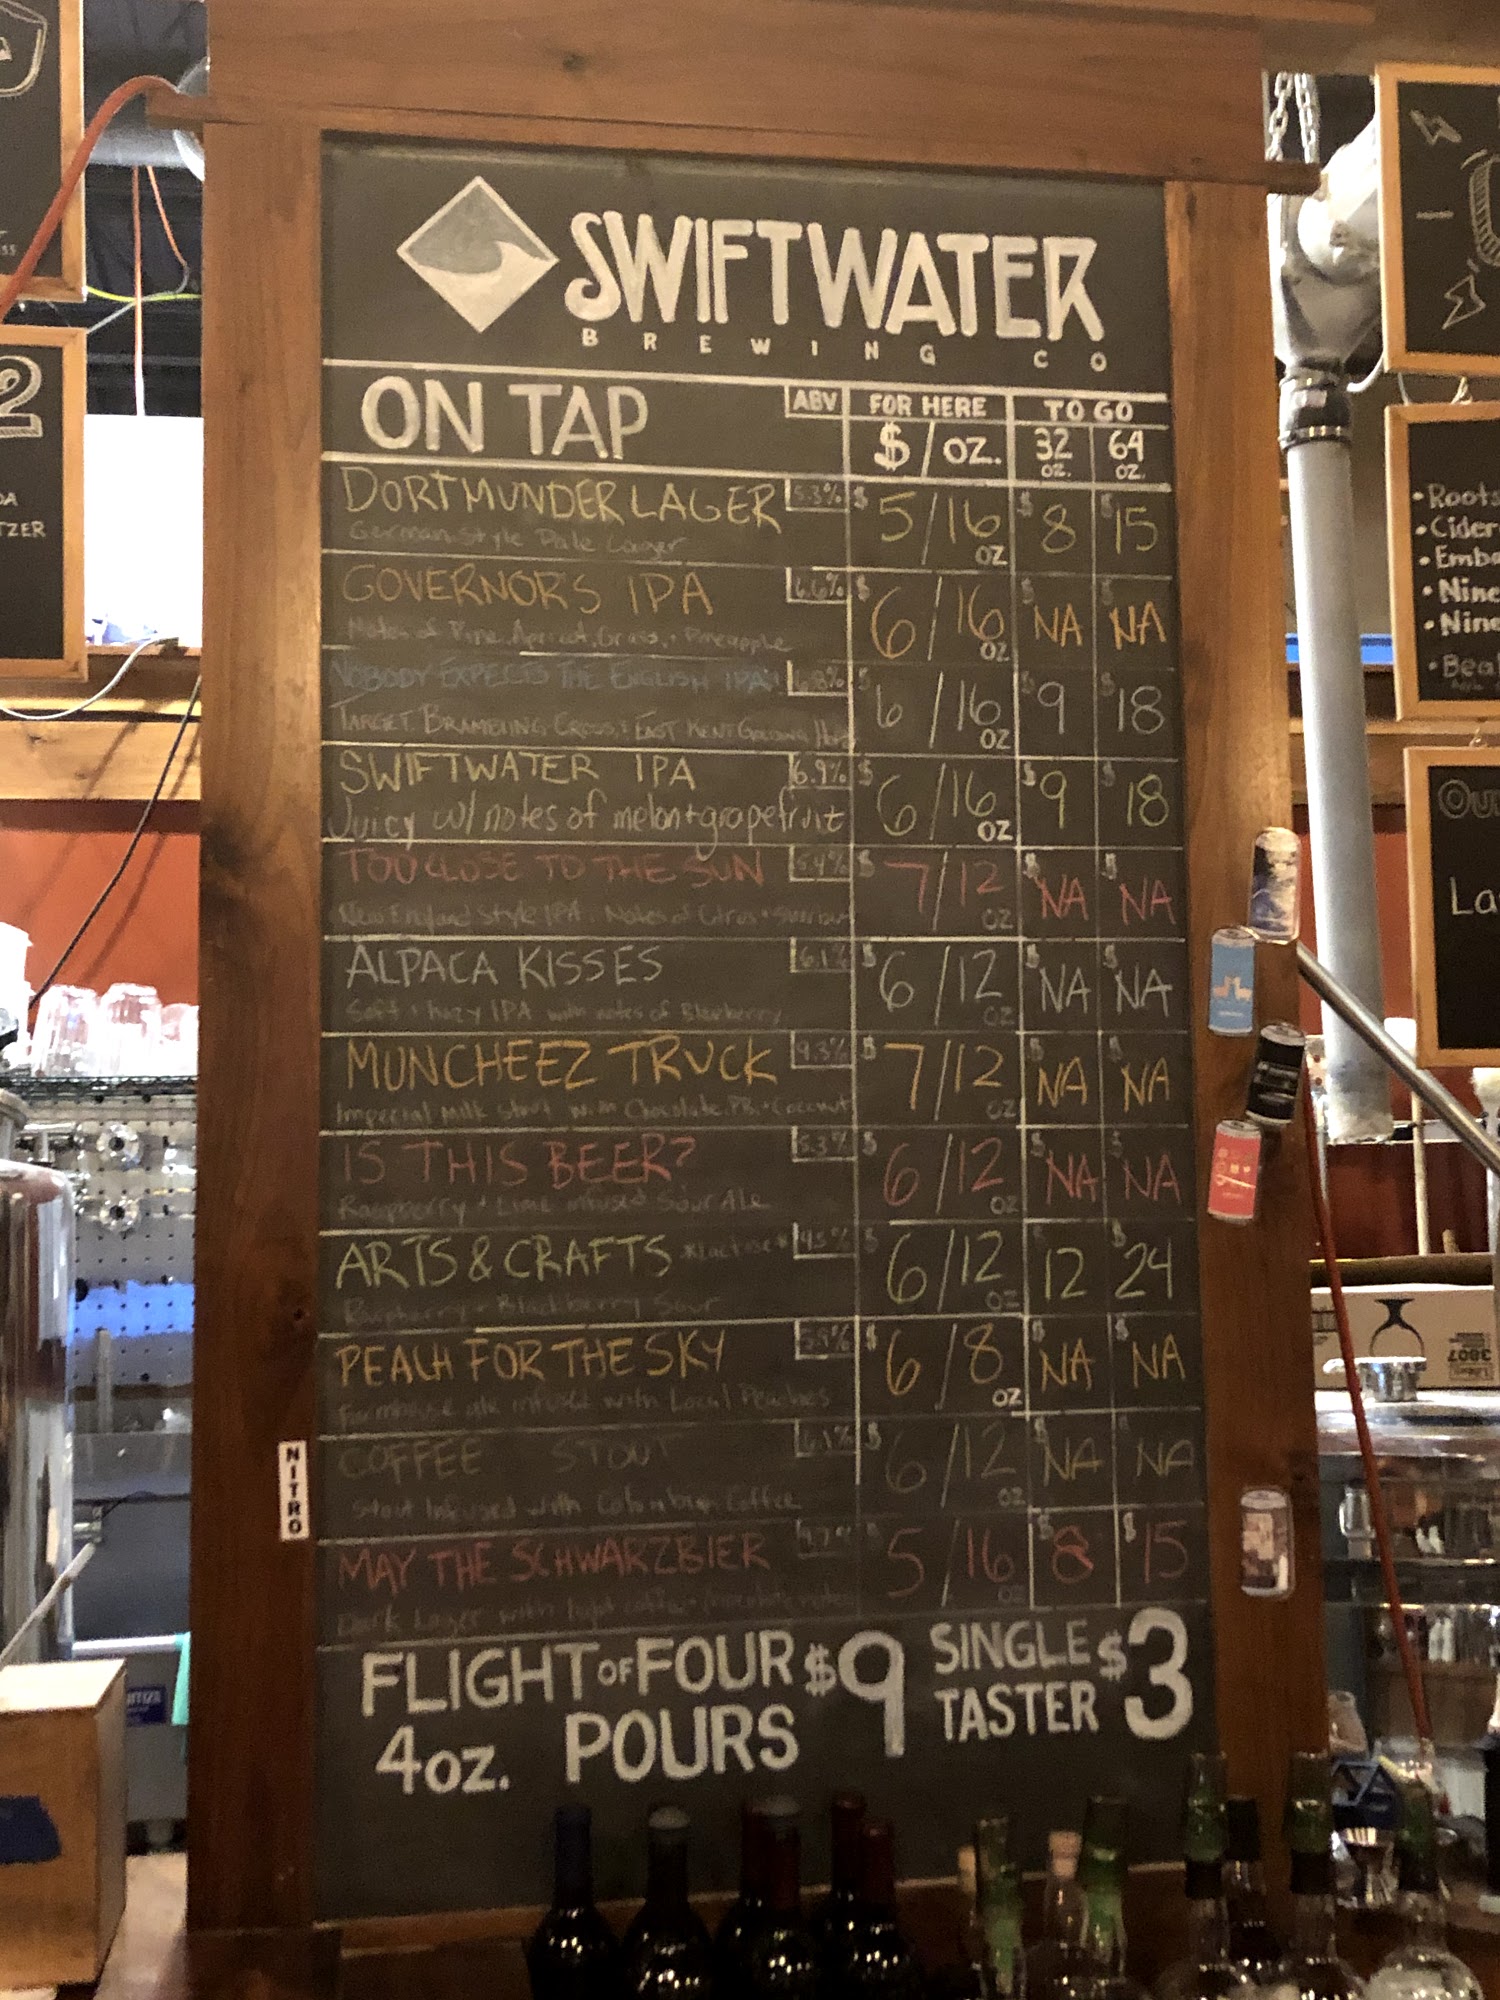 SWIFTWATER
BREWING CO
ON TAP ABV FOR HERE TO GO
$ / OZ. 32 OZ. 64 OZ.
DORTMUNDER LAGER 5.3% $ 5/16 OZ $ 8 $ 15
German Style Pale Lager
GOVERNOR'S IPA 6.6% $ 6/16 OZ $ NA $ NA
Notes of Pine, Apricot, Grass, + Pineapple
NOBODY EXPECTS THE ENGLISH IPA! 6.8% $ 6/16 OZ $ 9 $ 18
TARGET, BRAMBLING CROSS, + EAST KENT GOLDING Hops
SWIFTWATER IPA 6.9% $ 6/16 OZ $ 9 $ 18
Juicy w/ notes of melon + grapefruit
TOO CLOSE TO THE SUN 5.4% $ 7/12 OZ $ NA $ NA
New England Style IPA. Notes of Citrus +
ALPACA KISSES 6.1% $ 6/12 OZ $ NA $ NA
Soft + hazy IPA with notes of Blueberry
MUNCHEEZ TRUCK 9.3% $ 7/12 OZ $ NA $ NA
Imperial Milk Stout with Chocolate, PB, + Coconut
IS THIS BEER? 5.3% $ 6/12 OZ $ NA $ NA
Raspberry + Lime infused Sour Ale
ARTS & CRAFTS *lactose* 4.5% $ 6/12 OZ 12 $ 24
Raspberry + Blackberry Sour
PEACH FOR THE SKY 5.9% $ 6/8 OZ $ NA $ NA
Farmhouse ale infused with Local Peaches
NITRO
COFFEE STOUT 6.1% $ 6/12 OZ $ NA NA
Stout Infused with Colombian Coffee
MAY THE SCHWARZBIER 5/16 OZ $ 8 $ 15
Dark Lager with light coffee + chocolate notes
FLIGHT OF FOUR $9 SINGLE $3
4oz. POURS TASTER
2
TZER
• Roots
• Cider
• Embe
• Nine
• Nine
• Beal
Ou
La
3807